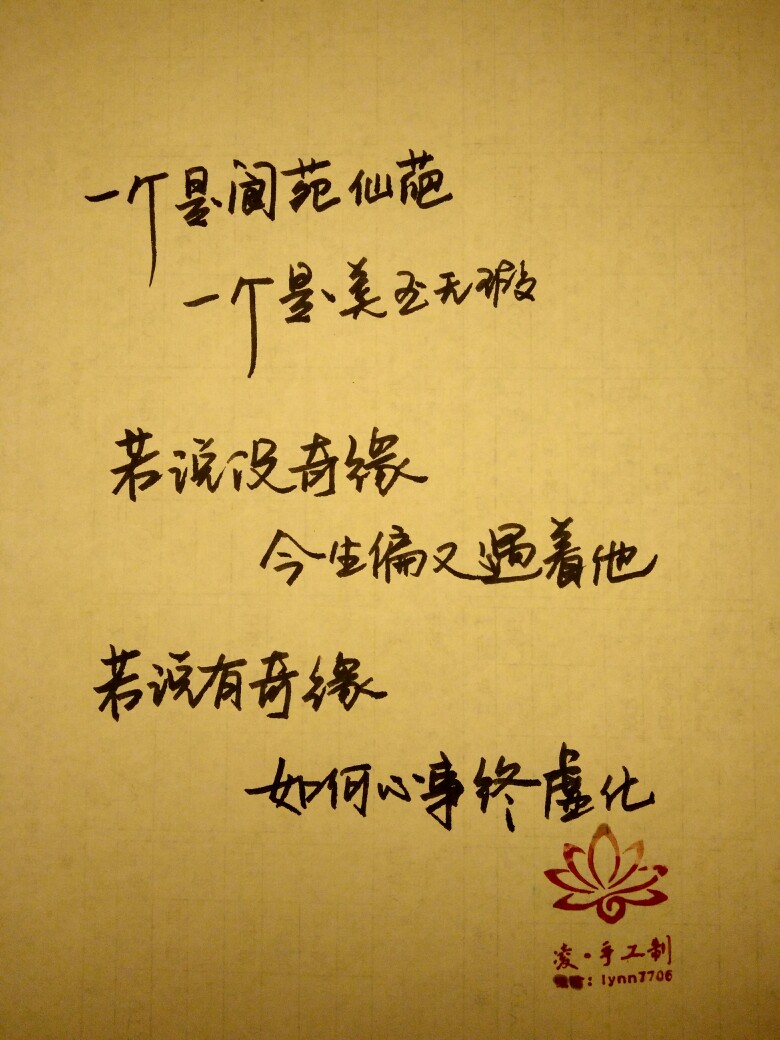 一个是阆苑仙葩
一个是美玉无瑕
若说没奇缘
今生偏又遇着他
若说有奇缘
如何心事终虚化
凌·手工制
微信：lynn7706